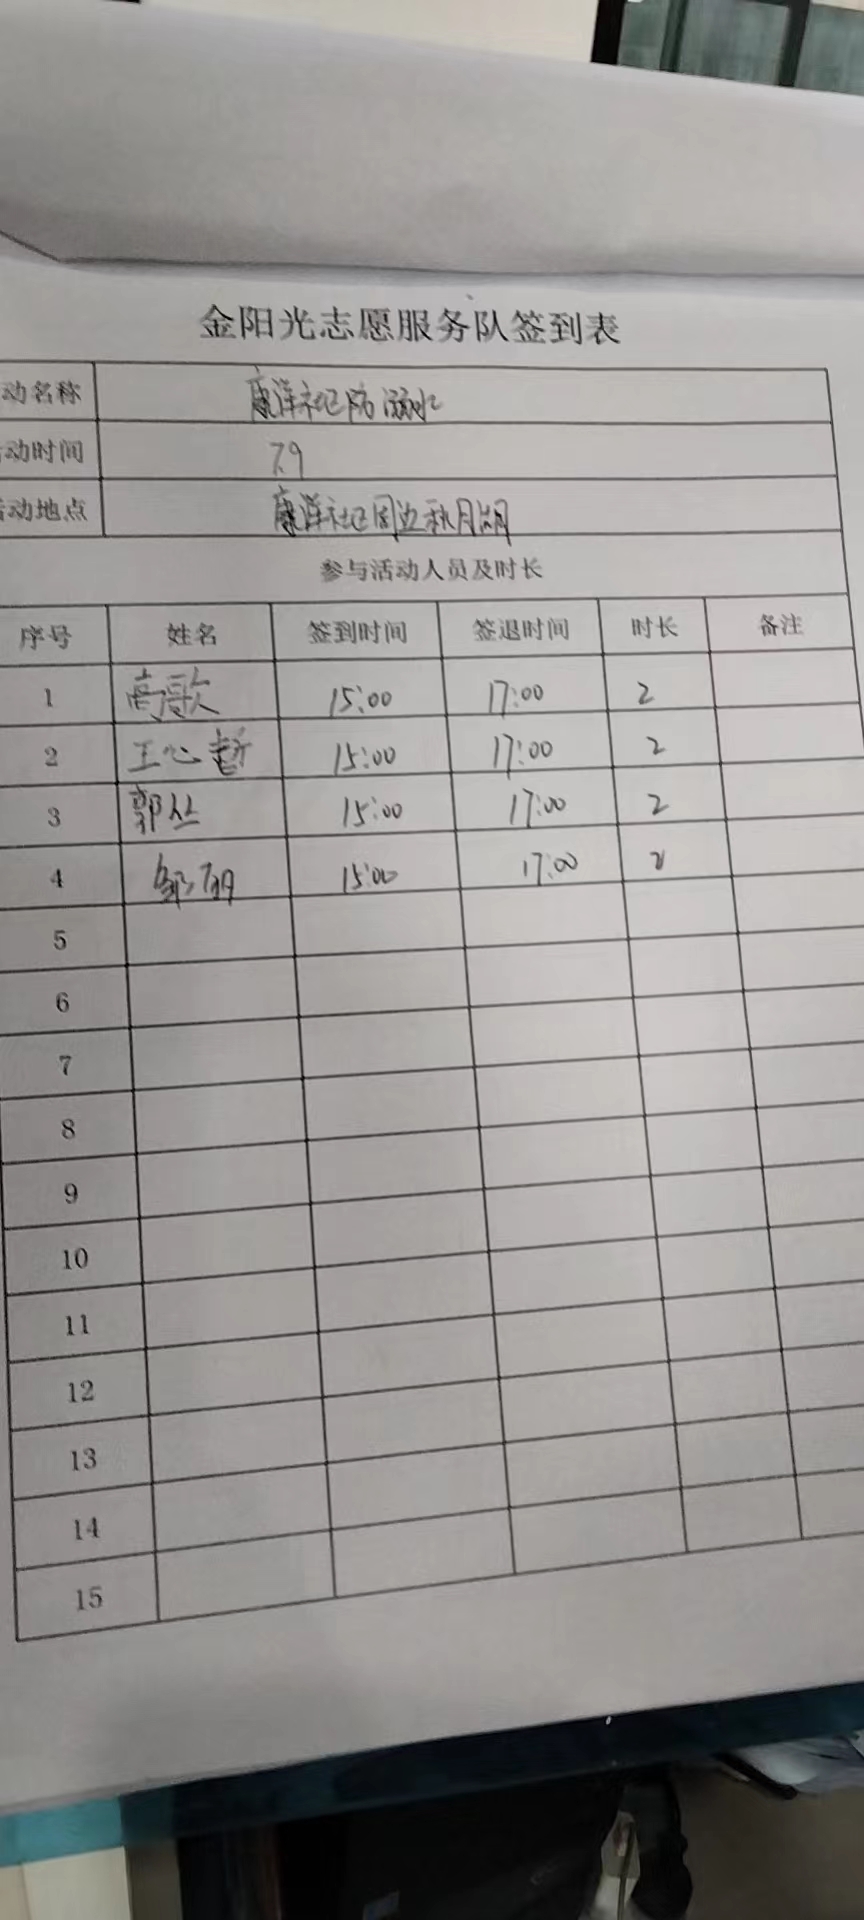 金阳光志愿服务队签到表
动名称 康泽社区防溺水
活动时间 7.9
活动地点 康泽社区周边秋月湖
参与活动人员及时长
序号 姓名 签到时间 签退时间 时长 备注
1 高歌 15:00 17:00 2
2 王心哲 15:00 17:00 2
3 郭丝 15:00 17:00 2
4 15:00 17:00 2
5
6
7
8
9
10
11
12
13
14
15